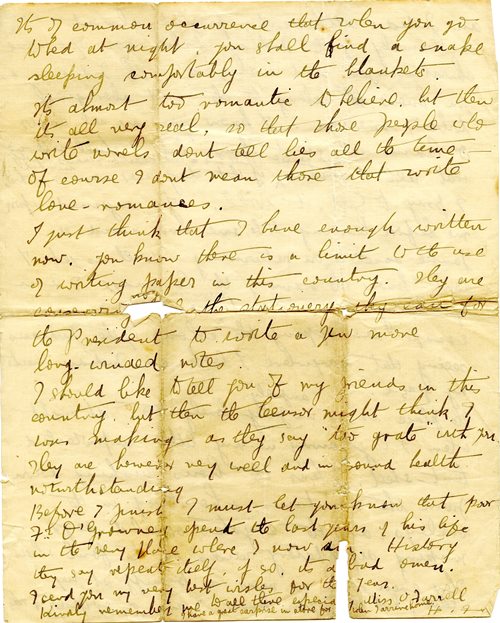 Its of common occurrence that when you go
to bed at night, you shall find a snake
sleeping comfortably in the blankets.
Its almost too romantic to believe, but then
its all very real, so that those people who
write novels dont tell lies all the time —
of course I dont mean those that write
love-romances.
I just think that I have enough written
now. You know there is a limit to the use
of writing paper in this country. They are
conserving all the stationery they can for
the President to write a few more
long-winded notes.
I should like to tell you of my friends in this
country, but then the Censor might think I
was making as they say "too grate" with you.
They are however very well and in sound health
notwithstanding
Before I finish I must let you know that poor
Fr. O'Growney spent the last years of his life
in the very place where I now am. History
they say repeats itself, if so, its a bad omen.
I send you my very best wishes for the Year.
Kindly remember me to all there especially Miss O'Farrell
I have a great surprise in store for when I arrive home